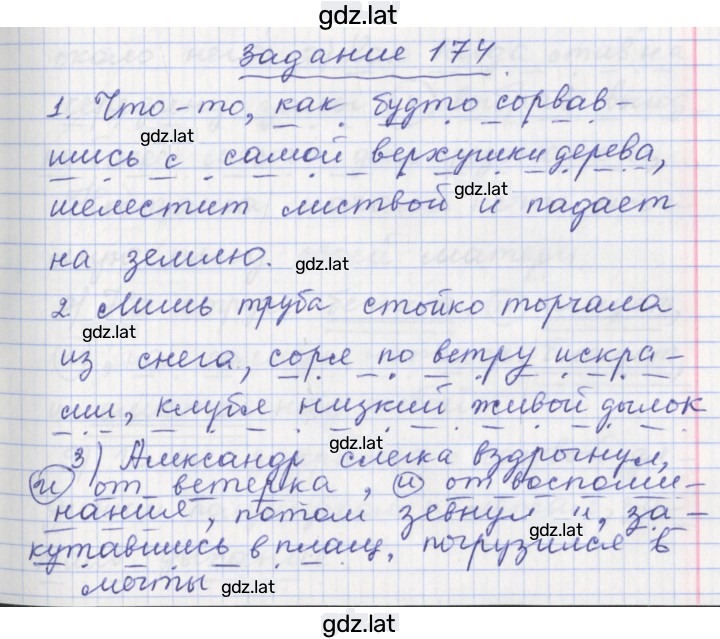 gdz.lat
задание 174
1. Что-то, как будто сорвав-
gdz.lat
шись с самой верхушки дерева,
gdz.lat
шелестит листвой и падает
на землю.
gdz.lat
2 Лишь труба стойко торчала
gdz.lat
из снега, соря по ветру искра-
ми, клубя низкий живой дымок
gdz.lat
3) Александр слегка вздрогнул,
и от ветерка, и от воспоми-
нания, потом зевнул и, за-
gdz.lat
кутавшись в плащ, погрузился в
мочты
gdz.lat
gdz.lat